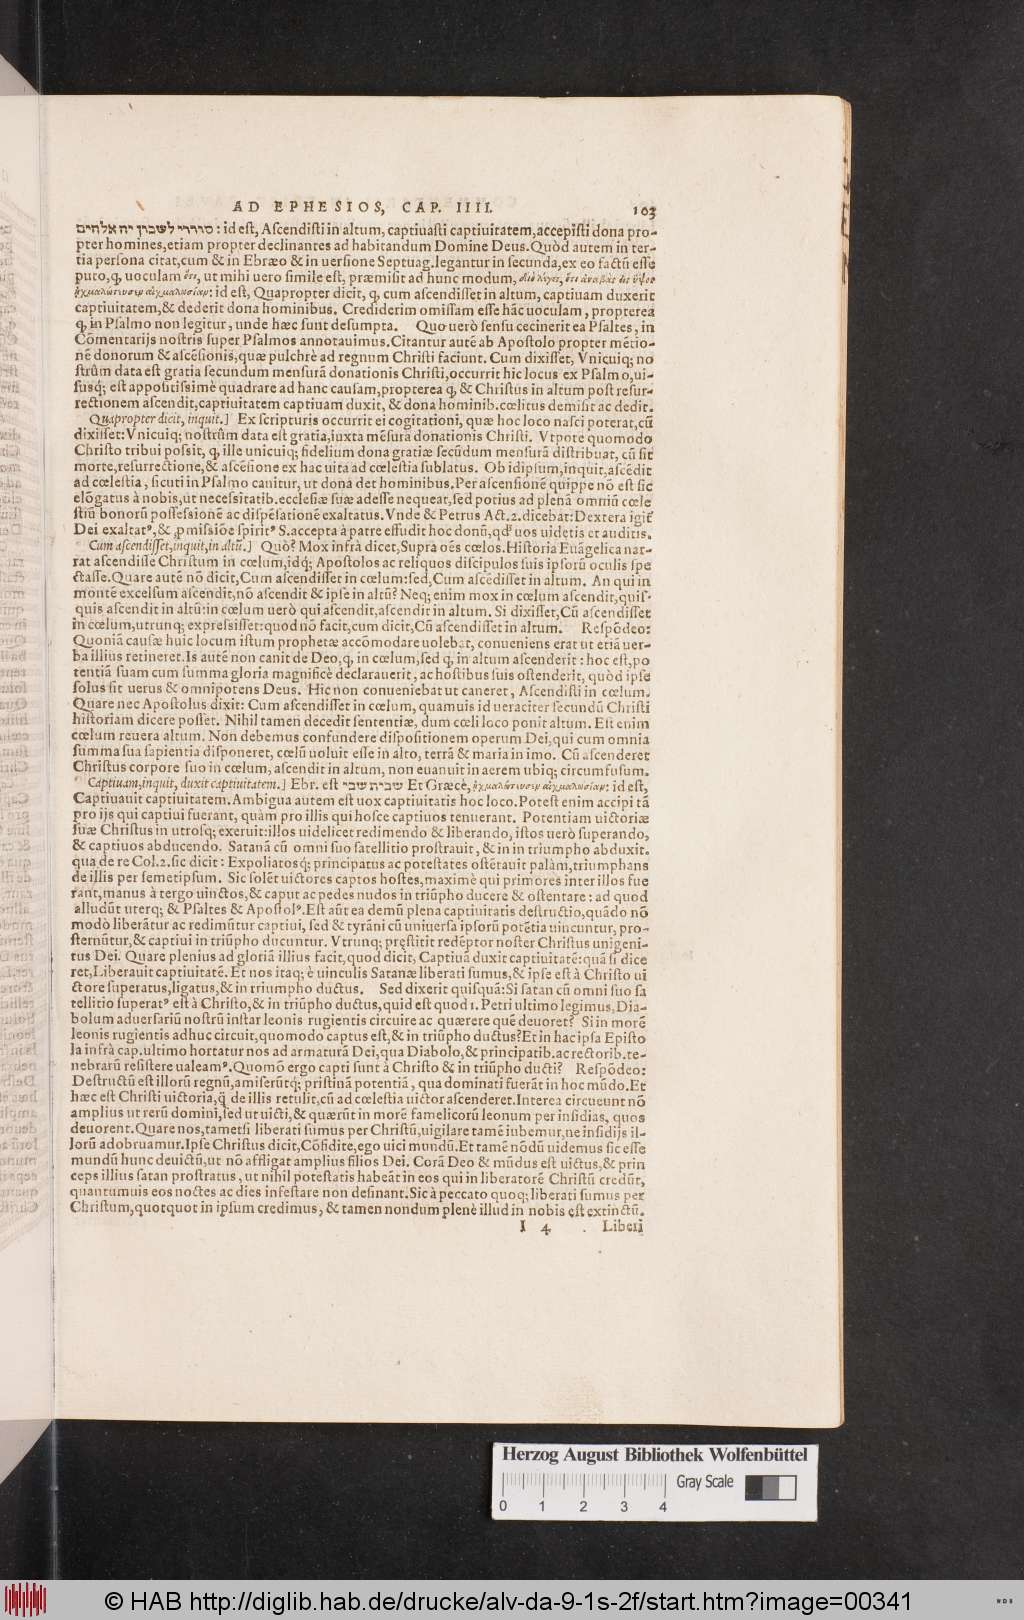 AD EPHESIOS, CAP. IIII. 103
סוררי לשכון יה אלהים : id est, Ascendisti in altum, captiuasti captiuitatem, accepisti dona pro-
pter homines, etiam propter declinantes ad habitandum Domine Deus. Quòd autem in ter-
tia persona citat, cum & in Ebræo & in uersione Septuag. legantur in secunda, ex eo factũ esse
puto, ꝙ, uoculam ὅτι, ut mihi uero simile est, præmisit ad hunc modum, διὸ λέγει, ὅτι ἀναβὰς εἰς ὕψος
ᾐχμαλώτευσεν αἰχμαλωσίαν: id est, Quapropter dicit, ꝙ, cum ascendisset in altum, captiuam duxerit
captiuitatem, & dederit dona hominibus. Crediderim omissam esse hãc uoculam, propterea
ꝙ, in Psalmo non legitur, unde hæc sunt desumpta. Quo uerò sensu cecinerit ea Psaltes, in
Cõmentarijs nostris super Psalmos annotauimus. Citantur autẽ ab Apostolo propter mẽtio-
nẽ donorum & ascẽsionis, quæ pulchrè ad regnum Christi faciunt. Cum dixisset, Vnicuiq; no
strûm data est gratia secundum mensurã donationis Christi, occurrit hic locus ex Psalmo, ui-
susq; est appositissimè quadrare ad hanc causam, propterea ꝙ, & Christus in altum post resur-
rectionem ascendit, captiuitatem captiuam duxit, & dona hominib. cœlitus demisit ac dedit.
Quapropter dicit, inquit.] Ex scripturis occurrit ei cogitationi, quæ hoc loco nasci poterat, cũ
dixisset: Vnicuiq; nostrûm data est gratia, iuxta mẽsurã donationis Christi. Vtpote quomodo
Christo tribui possit, ꝙ, ille unicuiq; fidelium dona gratiæ secũdum mensurã distribuat, cũ sit
morte, resurrectione, & ascẽsione ex hac uita ad cœlestia sublatus. Ob idipsum, inquit, ascẽdit
ad cœlestia, sicuti in Psalmo canitur, ut dona det hominibus. Per ascensionẽ quippe nõ est sic
elõgatus à nobis, ut necessitatib. ecclesiæ suæ adesse nequeat, sed potius ad plenã omniũ cœle
stiũ bonorũ possessionẽ ac dispẽsationẽ exaltatus. Vnde & Petrus Act. 2. dicebat: Dextera igit̃
Dei exaltatꝰ, & ꝓmissiõe spiritꝰ S. accepta à patre effudit hoc donũ, qđ uos uidetis et auditis.
Cum ascendisset, inquit, in altũ.] Quò? Mox infrà dicet, Supra oẽs cœlos. Historia Euãgelica nar-
rat ascendisse Christum in cœlum, idq; Apostolos ac reliquos discipulos suis ipsorũ oculis spe
ctasse. Quare autẽ nõ dicit, Cum ascendisset in cœlum: sed, Cum ascẽdisset in altum. An qui in
montẽ excelsum ascendit, nõ ascendit & ipse in altũ? Neq; enim mox in cœlum ascendit, quis-
quis ascendit in altũ: in cœlum uerò qui ascendit, ascendit in altum. Si dixisset, Cũ ascendisset
in cœlum, utrunq; expressisset: quod nõ facit, cum dicit, Cũ ascendisset in altum. Respõdeo:
Quoniã causæ huic locum istum prophetæ accõmodare uolebat, conueniens erat ut etiã uer-
ba illius retineret. Is autẽ non canit de Deo, ꝙ, in cœlum, sed ꝙ, in altum ascenderit: hoc est, po
tentiã suam cum summa gloria magnificè declarauerit, ac hostibus suis ostenderit, quòd ipse
solus sit uerus & omnipotens Deus. Hic non conueniebat ut caneret, Ascendisti in cœlum.
Quare nec Apostolus dixit: Cum ascendisset in cœlum, quamuis id ueraciter secundũ Christi
historiam dicere posset. Nihil tamen decedit sententiæ, dum cœli loco ponit altum. Est enim
cœlum reuera altum. Non debemus confundere dispositionem operum Dei, qui cum omnia
summa sua sapientia disponeret, cœlũ uoluit esse in alto, terrã & maria in imo. Cũ ascenderet
Christus corpore suo in cœlum, ascendit in altum, non euanuit in aerem ubiq; circumfusum.
Captiuam, inquit, duxit captiuitatem.] Ebr. est שבית שבי Et Græcè, ᾐχμαλώτευσεν αἰχμαλωσίαν: id est,
Captiuauit captiuitatem. Ambigua autem est uox captiuitatis hoc loco. Potest enim accipi tã
pro ijs qui captiui fuerant, quàm pro illis qui hosce captiuos tenuerant. Potentiam uictoriæ
suæ Christus in utrosq; exeruit: illos uidelicet redimendo & liberando, istos uerò superando,
& captiuos abducendo. Satanã cũ omni suo satellitio prostrauit, & in in triumpho abduxit.
qua de re Col. 2. sic dicit: Expoliatosq; principatus ac potestates ostẽtauit palàm, triumphans
de illis per semetipsum. Sic solẽt uictores captos hostes, maximè qui primores inter illos fue
rant, manus à tergo uinctos, & caput ac pedes nudos in triũpho ducere & ostentare: ad quod
alludũt uterq; & Psaltes & Apostolꝰ. Est aũt ea demũ plena captiuitatis destructio, quãdo nõ
modò liberãtur ac redimũtur captiui, sed & tyrãni cũ uniuersa ipsorũ potẽtia uincuntur, pro-
sternũtur, & captiui in triũpho ducuntur. Vtrunq; pręstitit redẽptor noster Christus unigeni-
tus Dei. Quare plenius ad gloriã illius facit, quod dicit, Captiuã duxit captiuitatẽ: quã si dice
ret, Liberauit captiuitatẽ. Et nos itaq; è uinculis Satanæ liberati sumus, & ipse est à Christo ui
ctore superatus, ligatus, & in triumpho ductus. Sed dixerit quisquã: Si satan cũ omni suo sa
tellitio superatꝰ est à Christo, & in triũpho ductus, quid est quod 1. Petri ultimo legimus, Dia-
bolum aduersariũ nostrũ instar leonis rugientis circuire ac quærere quẽ deuoret? Si in morẽ
leonis rugientis adhuc circuit, quomodo captus est, & in triũpho ductus? Et in hac ipsa Episto
la infrà cap. ultimo hortatur nos ad armaturã Dei, qua Diabolo, & principatib. ac rectorib. te-
nebrarũ resistere ualeamꝰ. Quomõ ergo capti sunt à Christo & in triũpho ducti? Respõdeo:
Destructũ est illorũ regnũ, amiserũtq; pristinã potentiã, qua dominati fuerãt in hoc mũdo. Et
hæc est Christi uictoria, q̃ de illis retulit, cũ ad cœlestia uictor ascenderet. Interea circueunt nõ
amplius ut rerũ domini, sed ut uicti, & quærũt in morẽ famelicorũ leonum per insidias, quos
deuorent. Quare nos, tametsi liberati sumus per Christũ, uigilare tamẽ iubemur, ne insidijs il-
lorũ adobruamur. Ipse Christus dicit, Cõfidite, ego uici mundũ. Et tamẽ nõdũ uidemus sic esse
mundũ hunc deuictũ, ut nõ affligat amplius filios Dei. Corã Deo & mũdus est uictus, & prin
ceps illius satan prostratus, ut nihil potestatis habeãt in eos qui in liberatorẽ Christũ credũt,
quantumuis eos noctes ac dies infestare non desinant. Sic à peccato quoq; liberati sumus per
Christum, quotquot in ipsum credimus, & tamen nondum plenè illud in nobis est extinctũ.
I 4 Liberi
Herzog August Bibliothek Wolfenbüttel
Gray Scale
0 1 2 3 4
© HAB http://diglib.hab.de/drucke/alv-da-9-1s-2f/start.htm?image=00341